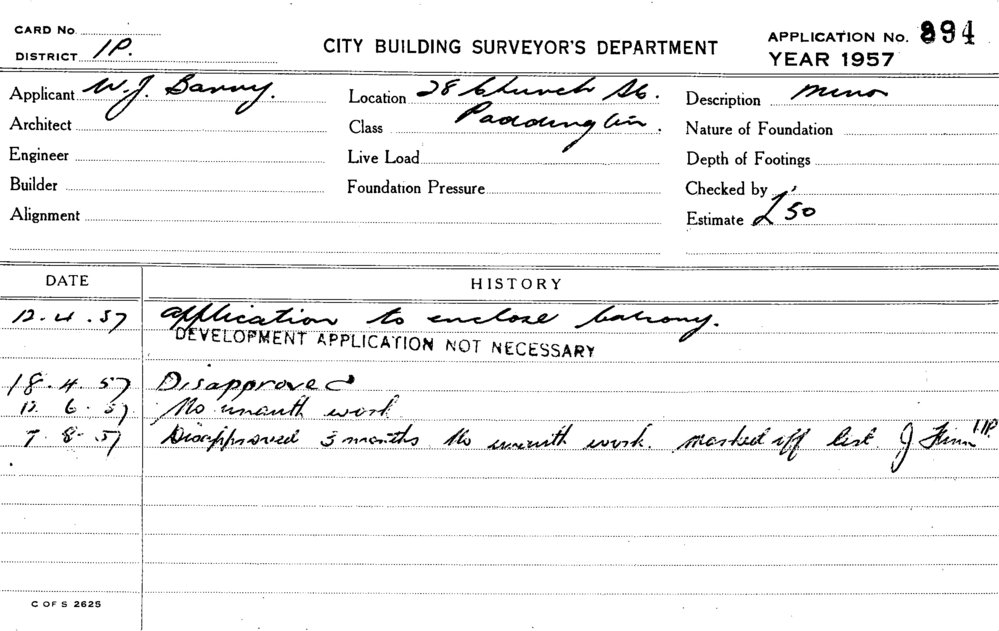 CARD No.
DISTRICT 1P.
CITY BUILDING SURVEYOR'S DEPARTMENT
APPLICATION No. 894
YEAR 1957
Applicant W.J. Barry. Location 28 Church St. Description minor
Architect Class Paddington. Nature of Foundation
Engineer Live Load Depth of Footings
Builder Foundation Pressure Checked by
Alignment Estimate £50
DATE HISTORY
12.4.57 application to enclose balcony.
DEVELOPMENT APPLICATION NOT NECESSARY
18.4.57 Disapproved
12.6.57 No unauth work
7.8.57 Disapproved 3 months No unauth work. marked off list J 1P.
C OF S 2625